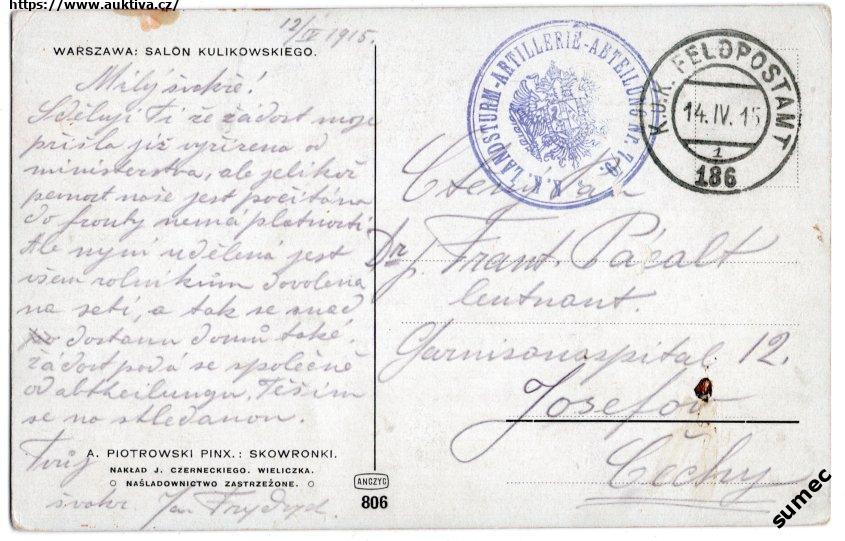 https://www.auktiva.cz/
12/IV 1915.
WARSZAWA: SALÓN KULIKOWSKIEGO.
Milý švakře!
Sděluji Ti že žádost moje
přišla již vyřízena od
ministerstva, ale jelikož
pevnost naše jest počítána
do fronty nemá platnosti.
Ale nyní udělená jest
všem rolníkům dovolená
na setí, a tak se snad
dostanu domů také.
Žádost podá se společně
od abtheilungu. Těším
se na shledanou.
Tvůj
švakr Jan
A. PIOTROWSKI PINX.: SKOWRONKI.
NAKŁAD J. CZERNECKIEGO. WIELICZKA.
NAŚLADOWNICTWO ZASTRZEŻONE.
ANCZYC
806
K.K. LANDSTURM-ARTILLERIE-ABTEILUNG Nr.
K.U.K. FELDPOSTAMT
14.IV.15
1
186
Ctěný Pán
Dr Frant. Pácalt
leutnant.
Garnisonsspital 12.
Josefov
Čechy
sumec